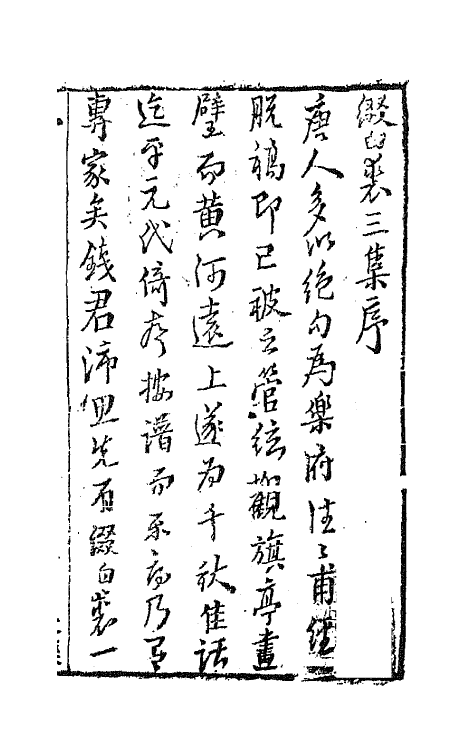 綴白裘三集序
唐人多以絶句為樂府往往甫經
脫稿即已被之管絃如觀旗亭畫
壁而黃河遠上遂為千秋佳話
迄乎元代倚聲按譜而系為乃有
專家矣錢君沛思先有綴白裘一